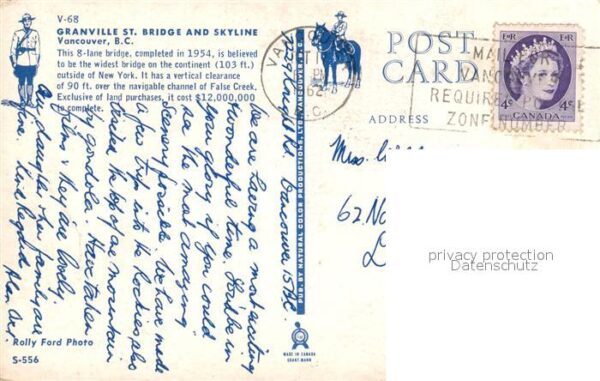 V-68
GRANVILLE ST. BRIDGE AND SKYLINE
Vancouver, B.C.
This 8-lane bridge, completed in 1954, is believed
to be the widest bridge on the continent (103 ft.)
outside of New York. It has a vertical clearance
of 90 ft. over the navigable channel of False Creek.
Exclusive of land purchases, it cost $12,000,000
to complete.
Vancouver 15 BC.
We are having a most exciting
& wonderful time. You'd be in
your glory if you could
see the most amazing
scenery possible. We have made
a few trips into the Rockies plus
to the top of a mountain
in gondola. Have taken
films & they are lovely
daughter & her family are
fine. Kind Regards
Rolly Ford Photo
S-556
PUB. BY NATURAL COLOR PRODUCTIONS, LTD. VANCOUVER, B.C.
MADE IN CANADA
GRANT-MANN
POST
CARD
ADDRESS
VANCOUVER
PM
62
B.C.
MAIL FOR
VANCOUVER
REQUIRES POSTAL
ZONE NUMBER
E II R
E II R
4¢
4¢
CANADA
Miss
62
privacy protection
Datenschutz